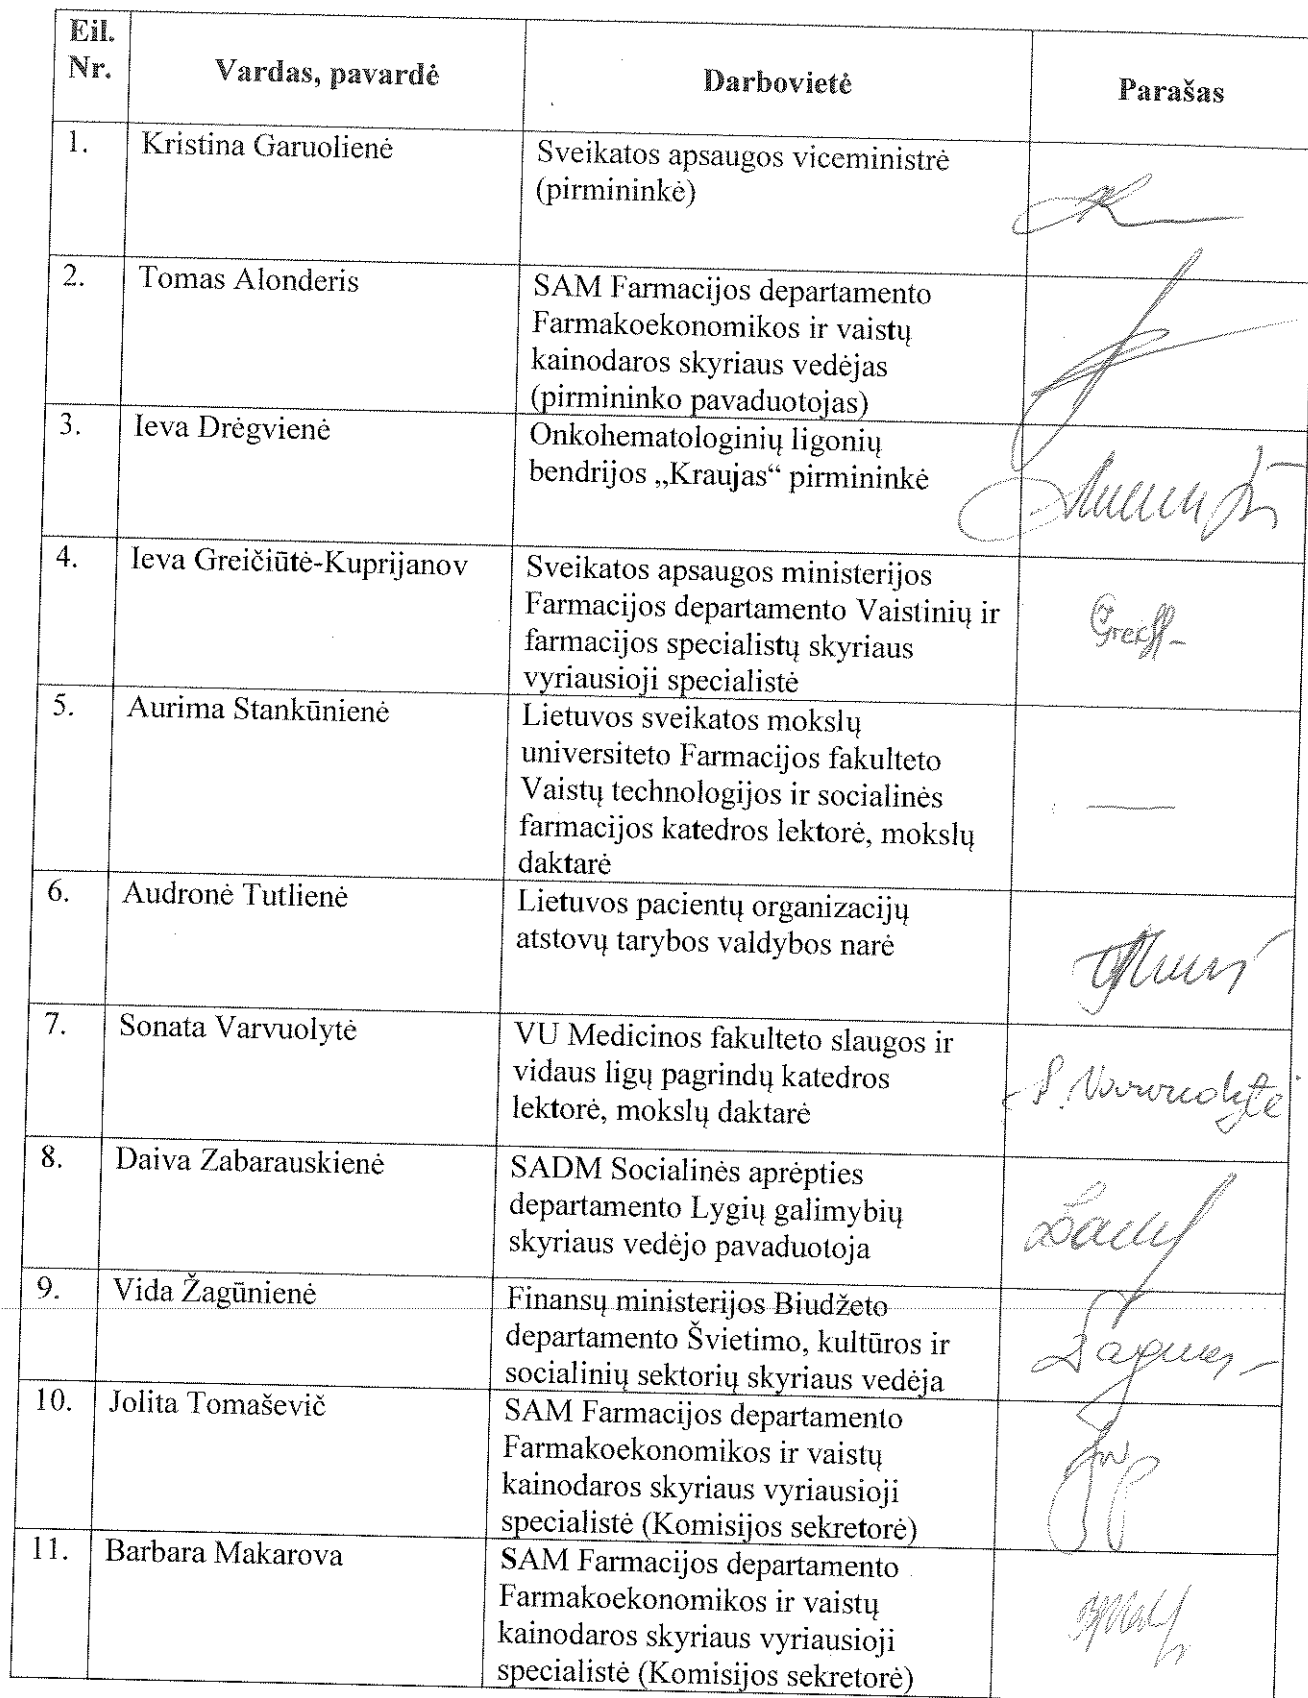 Eil.
Nr.
Vardas, pavardė
Darbovietė
Parašas
1.
Kristina Garuolienė
Sveikatos apsaugos viceministrė
(pirmininkė)
2.
Tomas Alonderis
SAM Farmacijos departamento
Farmakoekonomikos ir vaistų
kainodaros skyriaus vedėjas
(pirmininko pavaduotojas)
3.
Ieva Drėgvienė
Onkohematologinių ligonių
bendrijos „Kraujas“ pirmininkė
4.
Ieva Greičiūtė-Kuprijanov
Sveikatos apsaugos ministerijos
Farmacijos departamento Vaistinių ir
farmacijos specialistų skyriaus
vyriausioji specialistė
5.
Aurima Stankūnienė
Lietuvos sveikatos mokslų
universiteto Farmacijos fakulteto
Vaistų technologijos ir socialinės
farmacijos katedros lektorė, mokslų
daktarė
—
6.
Audronė Tutlienė
Lietuvos pacientų organizacijų
atstovų tarybos valdybos narė
7.
Sonata Varvuolytė
VU Medicinos fakulteto slaugos ir
vidaus ligų pagrindų katedros
lektorė, mokslų daktarė
S. Varvuolytė
8.
Daiva Zabarauskienė
SADM Socialinės aprėpties
departamento Lygių galimybių
skyriaus vedėjo pavaduotoja
9.
Vida Žagūnienė
Finansų ministerijos Biudžeto
departamento Švietimo, kultūros ir
socialinių sektorių skyriaus vedėja
10.
Jolita Tomaševič
SAM Farmacijos departamento
Farmakoekonomikos ir vaistų
kainodaros skyriaus vyriausioji
specialistė (Komisijos sekretorė)
11.
Barbara Makarova
SAM Farmacijos departamento
Farmakoekonomikos ir vaistų
kainodaros skyriaus vyriausioji
specialistė (Komisijos sekretorė)